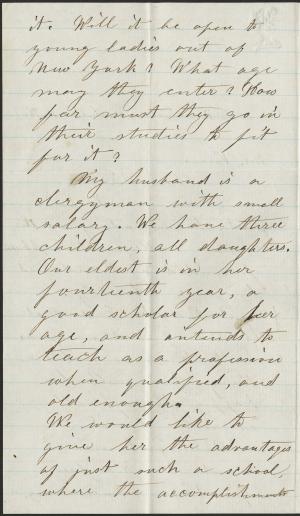 it. Will it be open to
young ladies out of
New York? What age
may they enter? How
far must they go in
their studies to fit
for it?
My husband is a
clergyman with small
salary. We have three
children, all daughters.
Our eldest is in her
fourteenth year, a
good scholar for her
age, and intends to
teach as a profession
when qualified, and
old enough.
We would like to
give her the advantages
of just such a school,
where the accomplishments